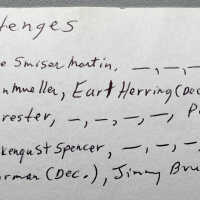 tenges
e Smiser Martin, —, —, —
nmueller, Earl Herring (Dec
rester, —, —, —, —, P
kenqust Spencer, —, —, —
orman (Dec.), Jimmy Bru